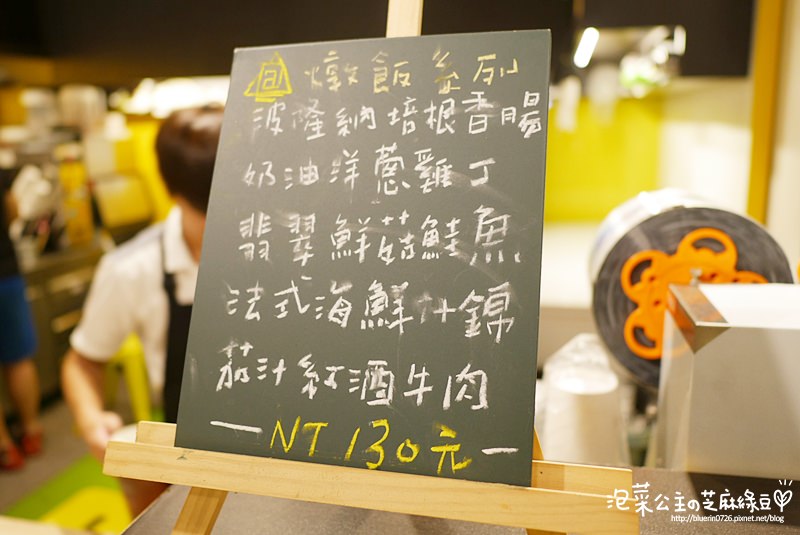 a 燉飯系列
波隆納培根香腸
奶油洋蔥雞丁
翡翠鮮菇鮭魚
法式海鮮什錦
茄汁紅酒牛肉
NT 130元
泡菜公主の芝麻綠豆
http://bluerin0726.pixnet.net/blog